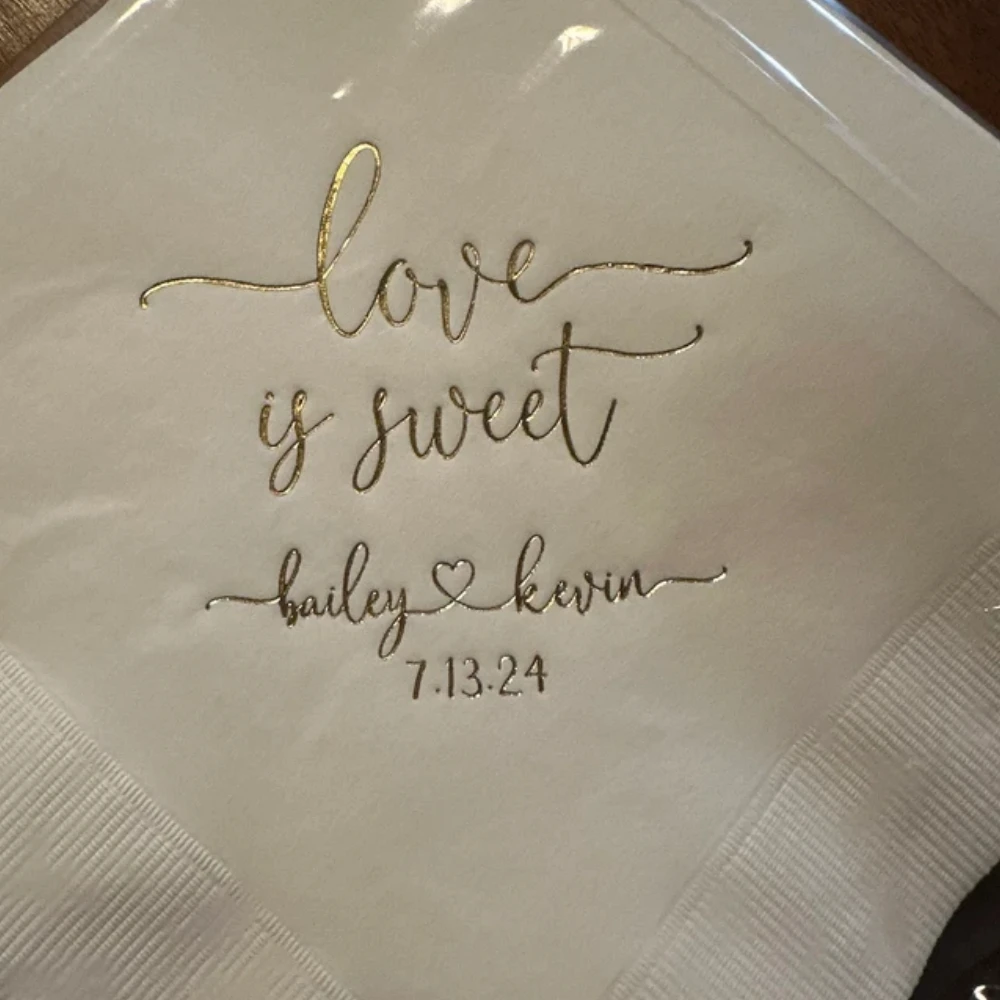 love
is sweet
bailey♡kevin
7.13.24